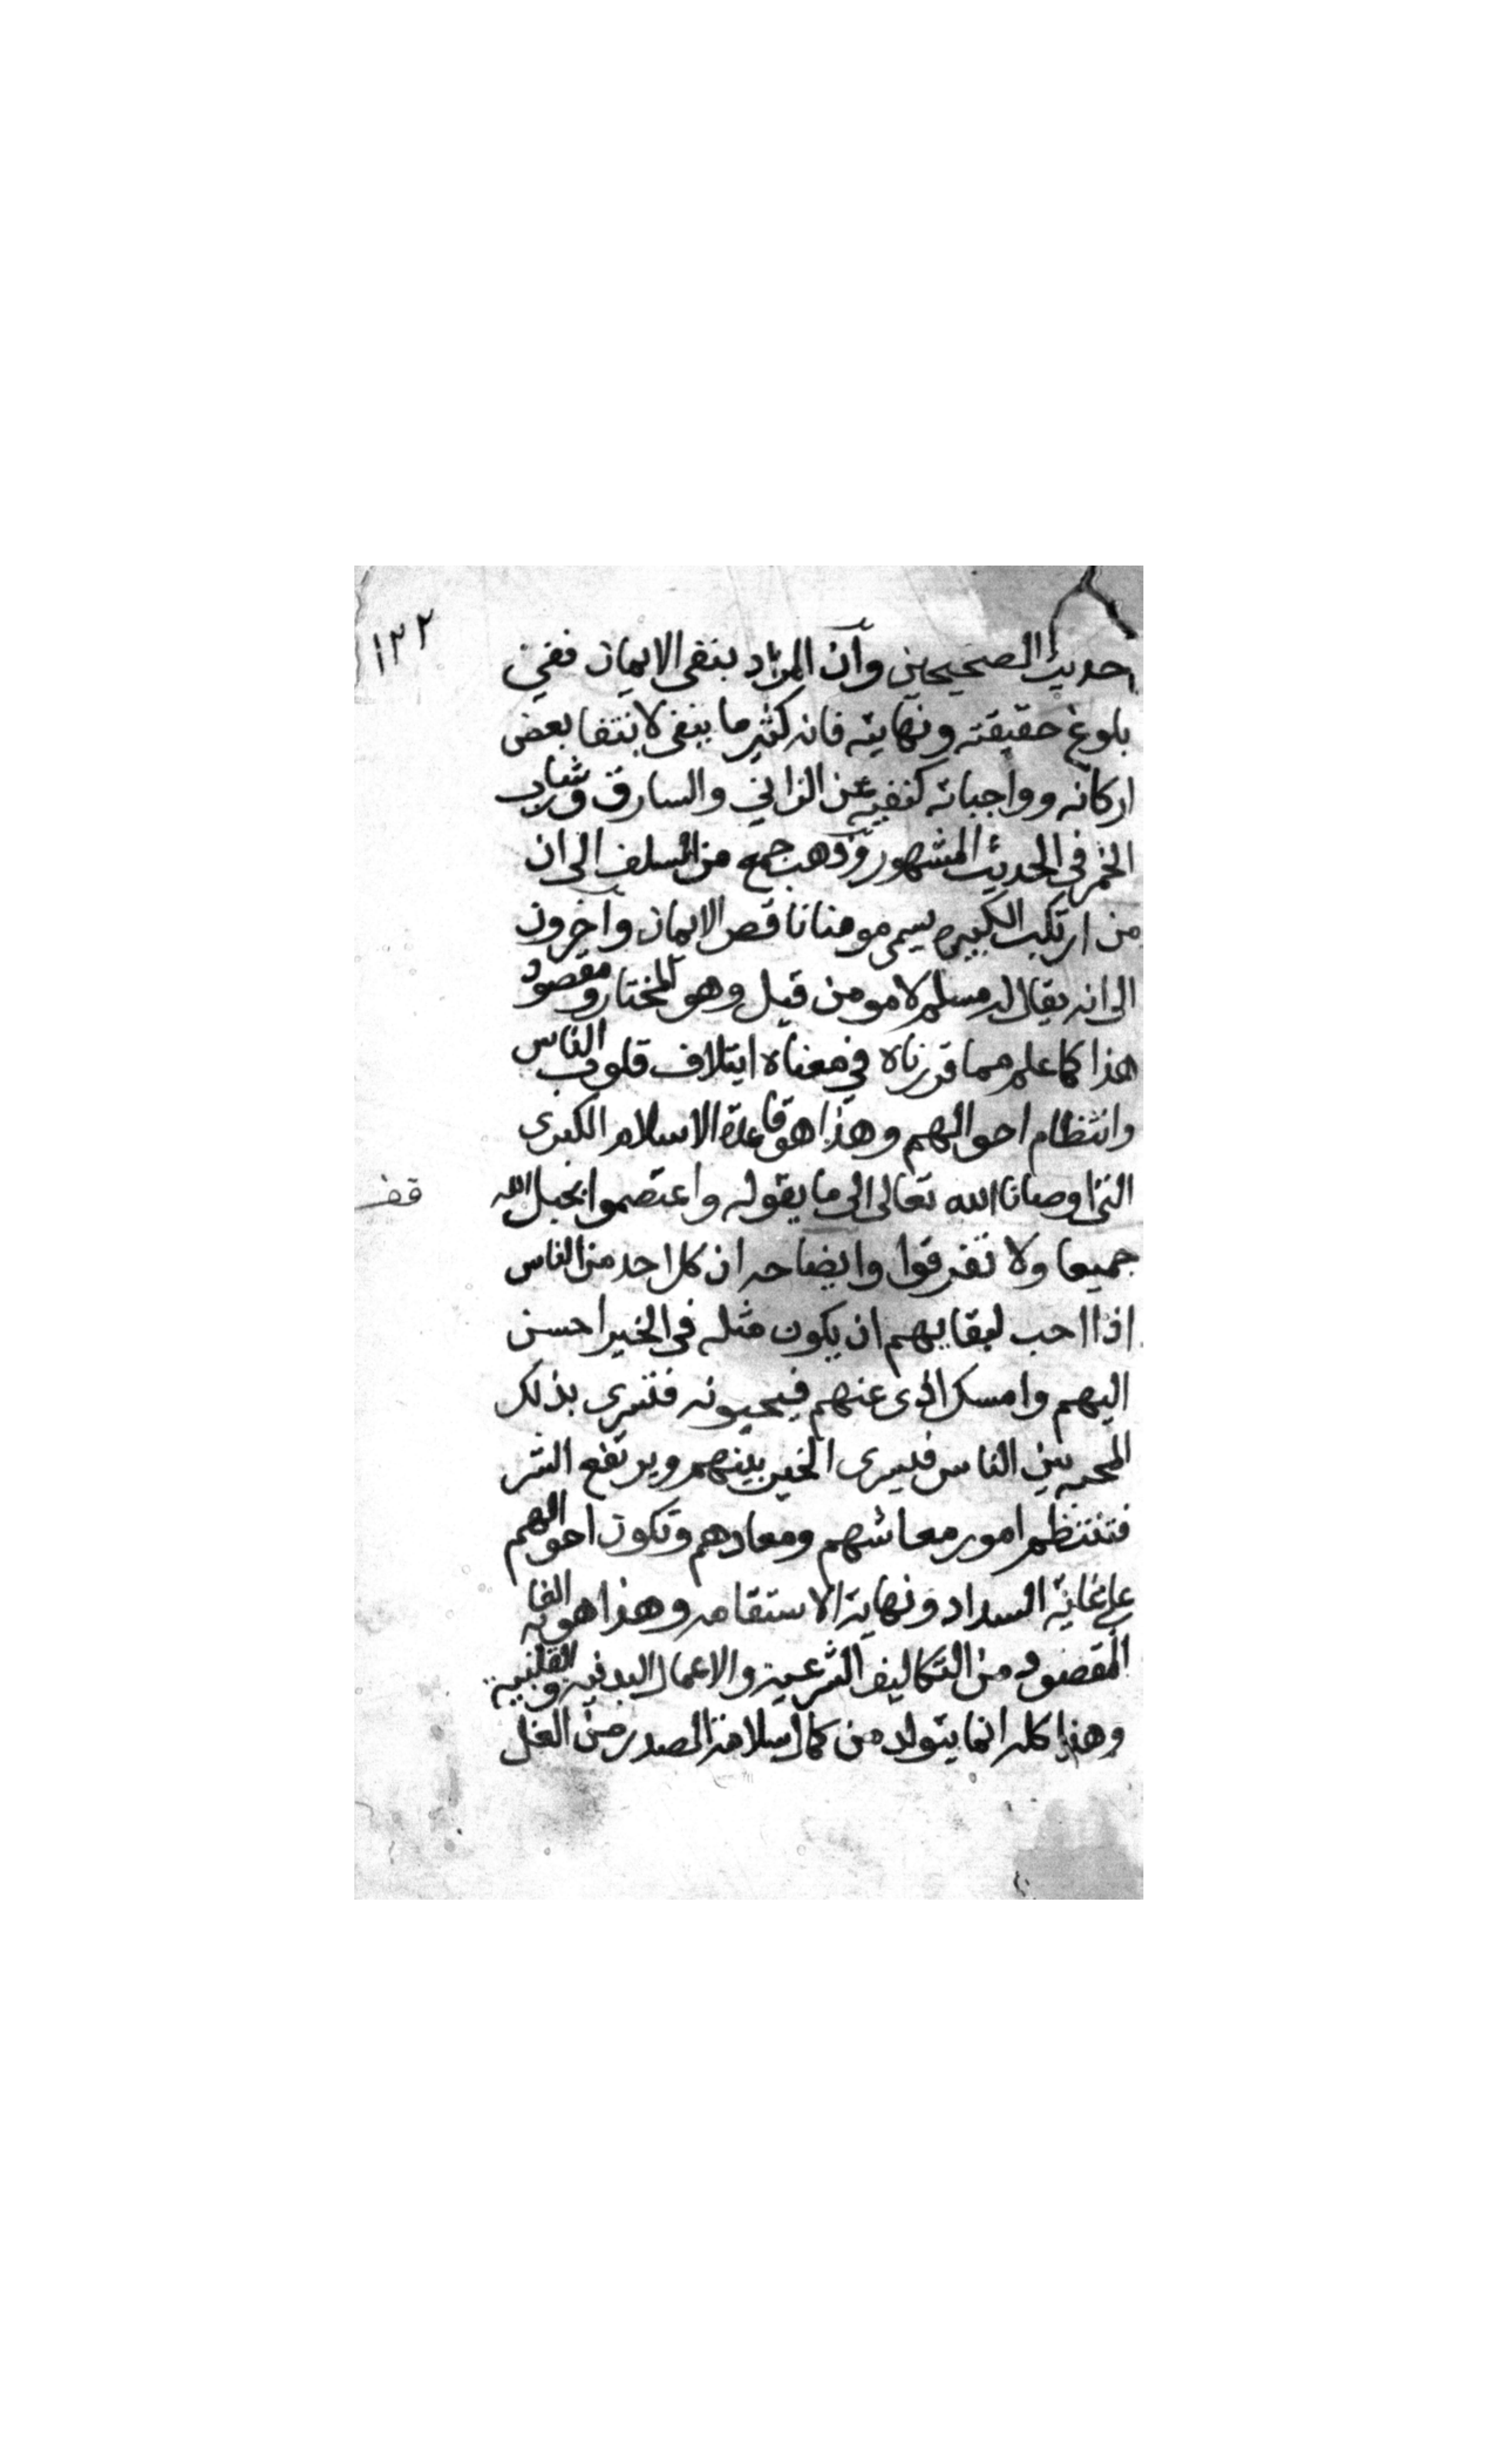 ١٢٢
حديث الصحيحين وان المراد بنفى الايمان ففي
بلوغ حقيقته ونهايته فانه كثير ما ينفى لانتفا بعض
اركانه وواجباته كنفيه عن الزاني والسارق وشارب
الخمر في الحديث المشهور وذهب جمع من السلف الى ان
من ارتكب الكبيره يسمى مومنا ناقص الايمان واخرون
الى انه يقال له مسلم لا مومن قيل وهو المختار ومقصود
هذا كما علم مما قررناه في معناه ايتلاف قلوب الناس
وانتظام احوالهم وهذا هو قاعدة الاسلام الكبرى
التى اوصانا الله تعالى الى ما يقوله واعتصموا بحبل الله
قف
جميعا ولا تفرقوا وايضاحه ان كل احد من الناس
اذا احب لبقايهم ان يكون مثله في الخير احسن
اليهم وامسك اذى عنهم فيحبونه فتسرى بذلك
المحبه بين الناس فيسرى الخير بينهم ويرتفع الشر
فتنتظم امور معاشهم ومعادهم وتكون احوالهم
على غاية السداد ونهاية الاستقامه وهذا هو الغايه
المقصود من التكاليف الشرعية والاعمال البدنيه والقلبيه
وهذا كله انما يتولد من كمال سلامة الصدر من الغل